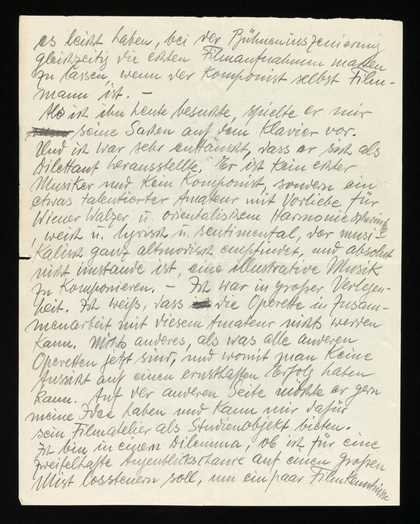 es leicht haben, bei der Bühneninszenierung
gleichzeitig die ersten Filmaufnahmen machen
zu lassen, wenn der Komponist selbst Film-
mann ist. –
Als ich ihn heute besuchte, spielte er mir
seine Sachen auf dem Klavier vor.
Und ich war sehr enttäuscht, dass er sich als
Dilettant herausstellte. Er ist kein echter
Musiker und kein Komponist, sondern ein
etwas talentierter Amateur mit Vorliebe für
Wiener Walzer u. orientalischem
weich u. lyrisch u. sentimental, der musi-
kalisch ganz altmodisch empfindet, und absolut
nicht imstande ist, eine illustrative Musik
zu komponieren. – Ich war in grosser Verlegen-
heit. Ich weiss, dass die Operette in Zusam-
menarbeit mit diesem Amateur nichts werden
kann. Nichts anderes, als was alle anderen
Operetten jetzt sind, und womit man keine
Aussicht auf einen ernsthaften Erfolg haben
kann. Auf der anderen Seite möchte er gern
meine Idee haben und kann mir dafür
sein Filmatelier als Studienobjekt bieten.
Ich bin in einem Dilemma, ob ich für eine
zweifelhafte Augenblickschance auf einen grossen
Mist lossteuern soll, um ein paar Filmkenntnisse